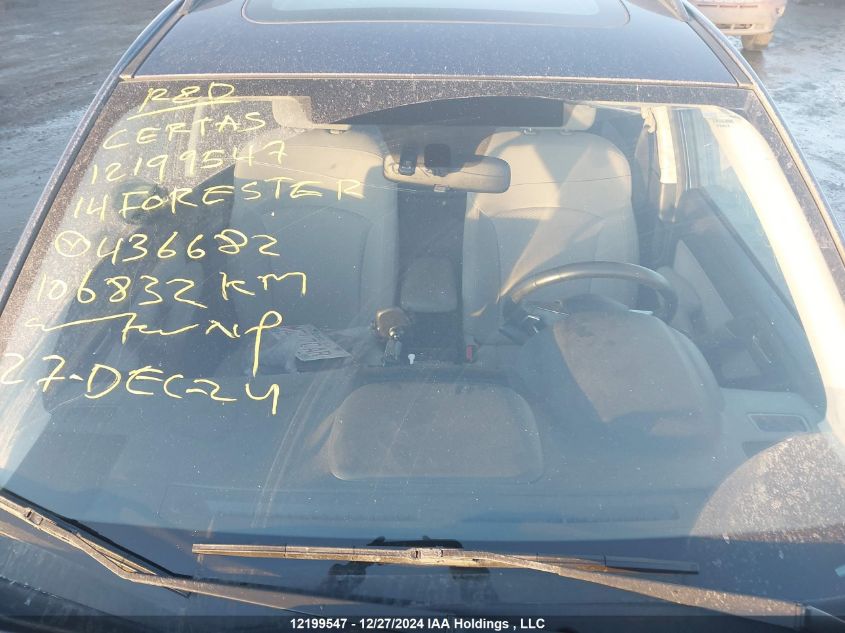 R&D
CERTAS
12199547
14 FORESTER
436682
106832 KM
NP
27-DEC-24
12199547 - 12/27/2024 IAA Holdings, LLC